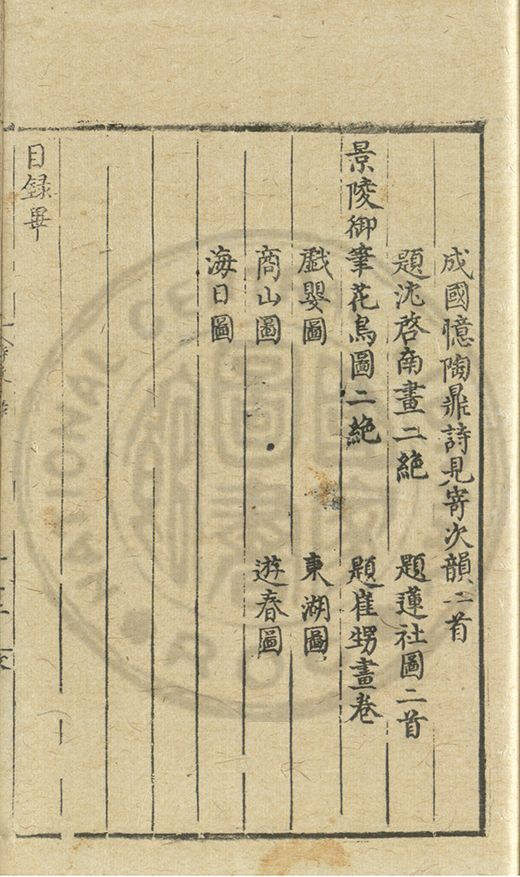 成國憶陶鼎詩見寄次韻二首
題沈啓南畫二絶 題蓮社圖二首
景陵御筆花鳥圖二絶 題崔甥畫卷
戲嬰圖 東湖圖
商山圖 遊春圖
海日圖
目録畢